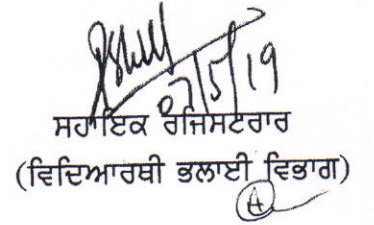 07/5/19
ਸਹਾਇਕ ਰਜਿਸਟਰਾਰ
(ਵਿਦਿਆਰਥੀ ਭਲਾਈ ਵਿਭਾਗ)
A